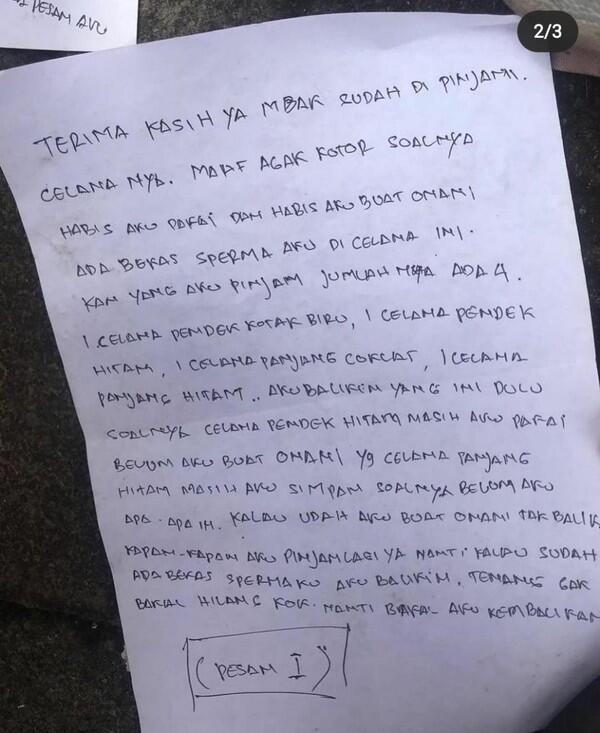 2/3
PESAM AKU
TERIMA KASIH YA MBAK SUDAH DI PINJAMI.
CELANA NYA. MAAF AGAK KOTOR SOALNYA
HABIS AKU PAKAI DAN HABIS AKU BUAT ONANI
ADA BEKAS SPERMA AKU DI CELANA INI.
KAN YANG AKU PINJAM JUMLAH NYA ADA 4.
1 CELANA PENDEK KOTAK BIRU, 1 CELANA PENDEK
HITAM, 1 CELANA PANJANG COKLAT, 1 CELANA
PANJANG HITAM.. AKU BALIKIN YANG INI DULU
SOALNYA CELANA PENDEK HITAM MASIH AKU PAKAI
BELUM AKU BUAT ONANI yg CELANA PANJANG
HITAM MASIH AKU SIMPAN SOALNYA BELUM AKU
APA-APA IN. KALAU UDAH AKU BUAT ONANI TAK BALIK
KAPAN-KAPAN AKU PINJAM LAGI YA NANTI KALAU SUDAH
ADA BEKAS SPERMAKU AKU BALIKIN. TENANG GAK
BAKAL HILANG KOK. NANTI BAKAL AKU KEMBALIKAN
(PESAN I)